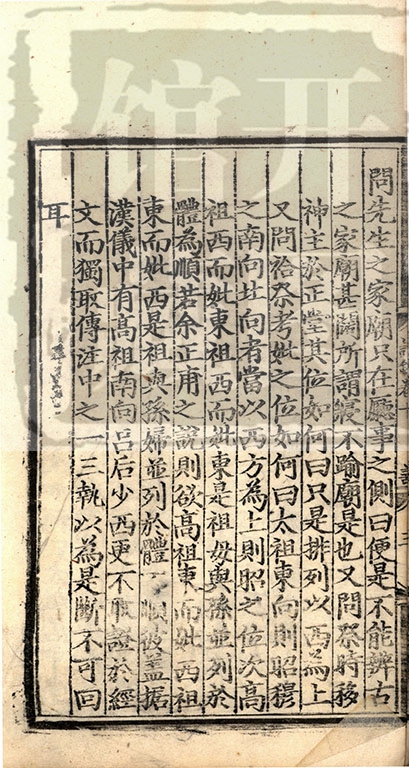 問先生之家廟只在廳事之側曰便是不能辨古
之家廟甚闊所謂寢不踰廟是也又問祭時移
神主於正堂其位如何曰只是排列以西爲上
又問祫祭考妣之位如何曰太祖東向則昭穆
之南向北向者當以西方為上則昭之位次高
祖西而妣東祖西而妣東是祖母與孫並列於
體為順若余正甫之說則欲高祖東而妣西祖
東而妣西是祖與孫婦並列於體順彼盖據
漢儀中有高祖南向呂后少西更不取證於經
文而獨取傳注中之一二執以為是斷不可回
耳
館開